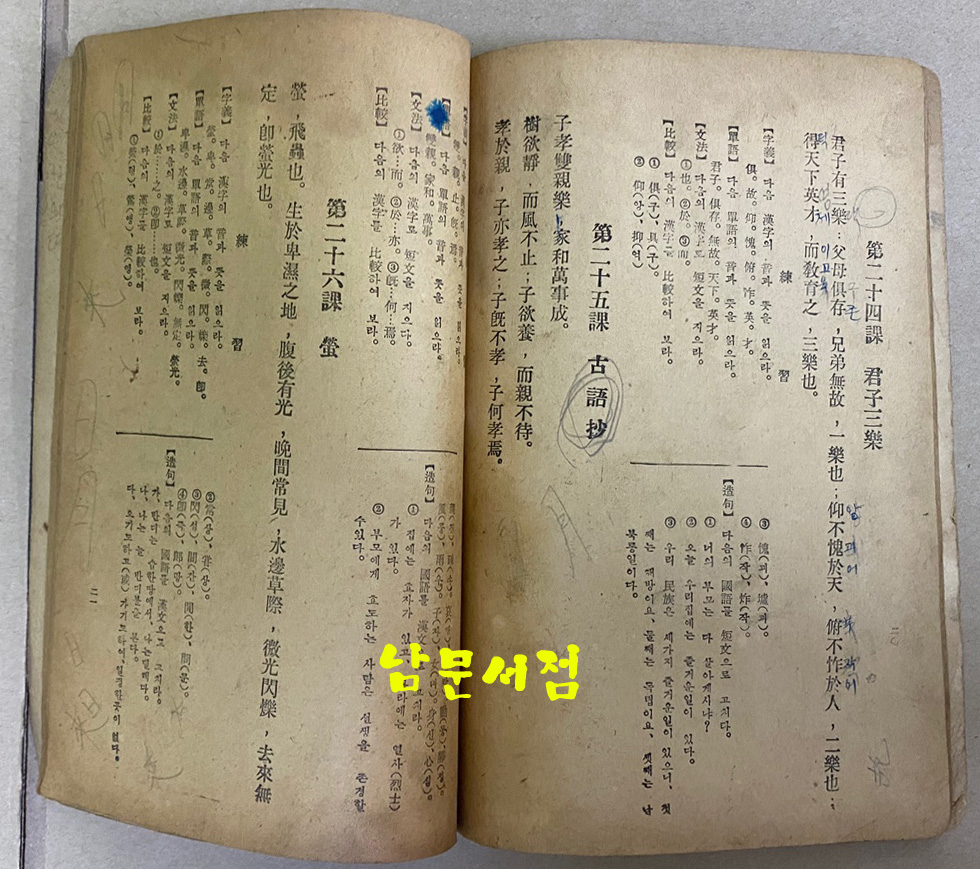 第二十四課 君子三樂
君子有三樂：父母俱存，兄弟無故，一樂也；仰不愧於天，俯不怍於人，二樂也；
得天下英才，而敎育之，三樂也。
練習
【字義】 다음 漢字의 音과 뜻을 읽으라.
俱。故。仰。愧。俯。怍。英。才。
【單語】 다음 單語의 音과 뜻을 읽으라.
君子。俱存。無故。天下。英才。
【文法】 다음의 漢字로 短文을 지으라.
①也。②於。③而。
【比較】 다음의 漢字를 比較하여 보라.
① 俱(구), 具(구)。
② 仰(앙), 抑(억)
③ 愧(괴), 塊(괴)。
④ 怍(작), 炸(작)。
【造句】 다음의 國語를 短文으로 고치라。
① 너의 부모는 다 살아계시냐?
② 오늘 우리집에는 즐거운일이 있다.
③ 우리 民族은 세가지 즐거운일이 있으니, 첫
째는 해방이요, 둘째는 독립이요, 셋째는 남
북통일이다.
二〇
第二十五課 古語抄
子孝雙親樂；家和萬事成。
樹欲靜，而風不止；子欲養，而親不待。
孝於親，子亦孝之；子旣不孝，子何孝焉。
다음 單語의 音과 뜻을 읽으라.
雙親。家和。萬事。
【文法】 다음의 漢字로 短文을 지으라.
①欲…而。②於…亦。③旣…何…焉。
【比較】 다음의 漢字를 比較하여 보라.
【造句】 다음의 國語를 漢文으로 고치라.
① 집에는 효자가 있고, 나라에는 열사(烈士)
가 있다.
② 부모에게 효도하는 사람은 선생을 존경할
수있다.
第二十六課 螢
螢，飛蟲也。生於卑濕之地，腹後有光，晩間常見；水邊草際，微光閃爍，去來無
定，卽螢光也。
練習
【字義】 다음 漢字의 音과 뜻을 읽으라.
螢。卑。常。邊。草。際。微。閃。爍。去。卽。
【單語】 다음 單語의 音과 뜻을 읽으라.
卑濕。水邊。草際。微光。閃爍。無定。螢光。
【文法】 다음의 漢字로 短文을 지으라.
①於……之。②卽……也。
【比較】 다음의 漢字를 比較하여 보라.
①螢(형), 鶯(앵), 榮(영)。
②常(상), 嘗(상)。
③閃(섬), 間(간), 閑(한), 問(문)。
④卽(즉), 郎(랑)。
【造句】 다음의 國語를 漢文으로 고치라.
二一
남문서점